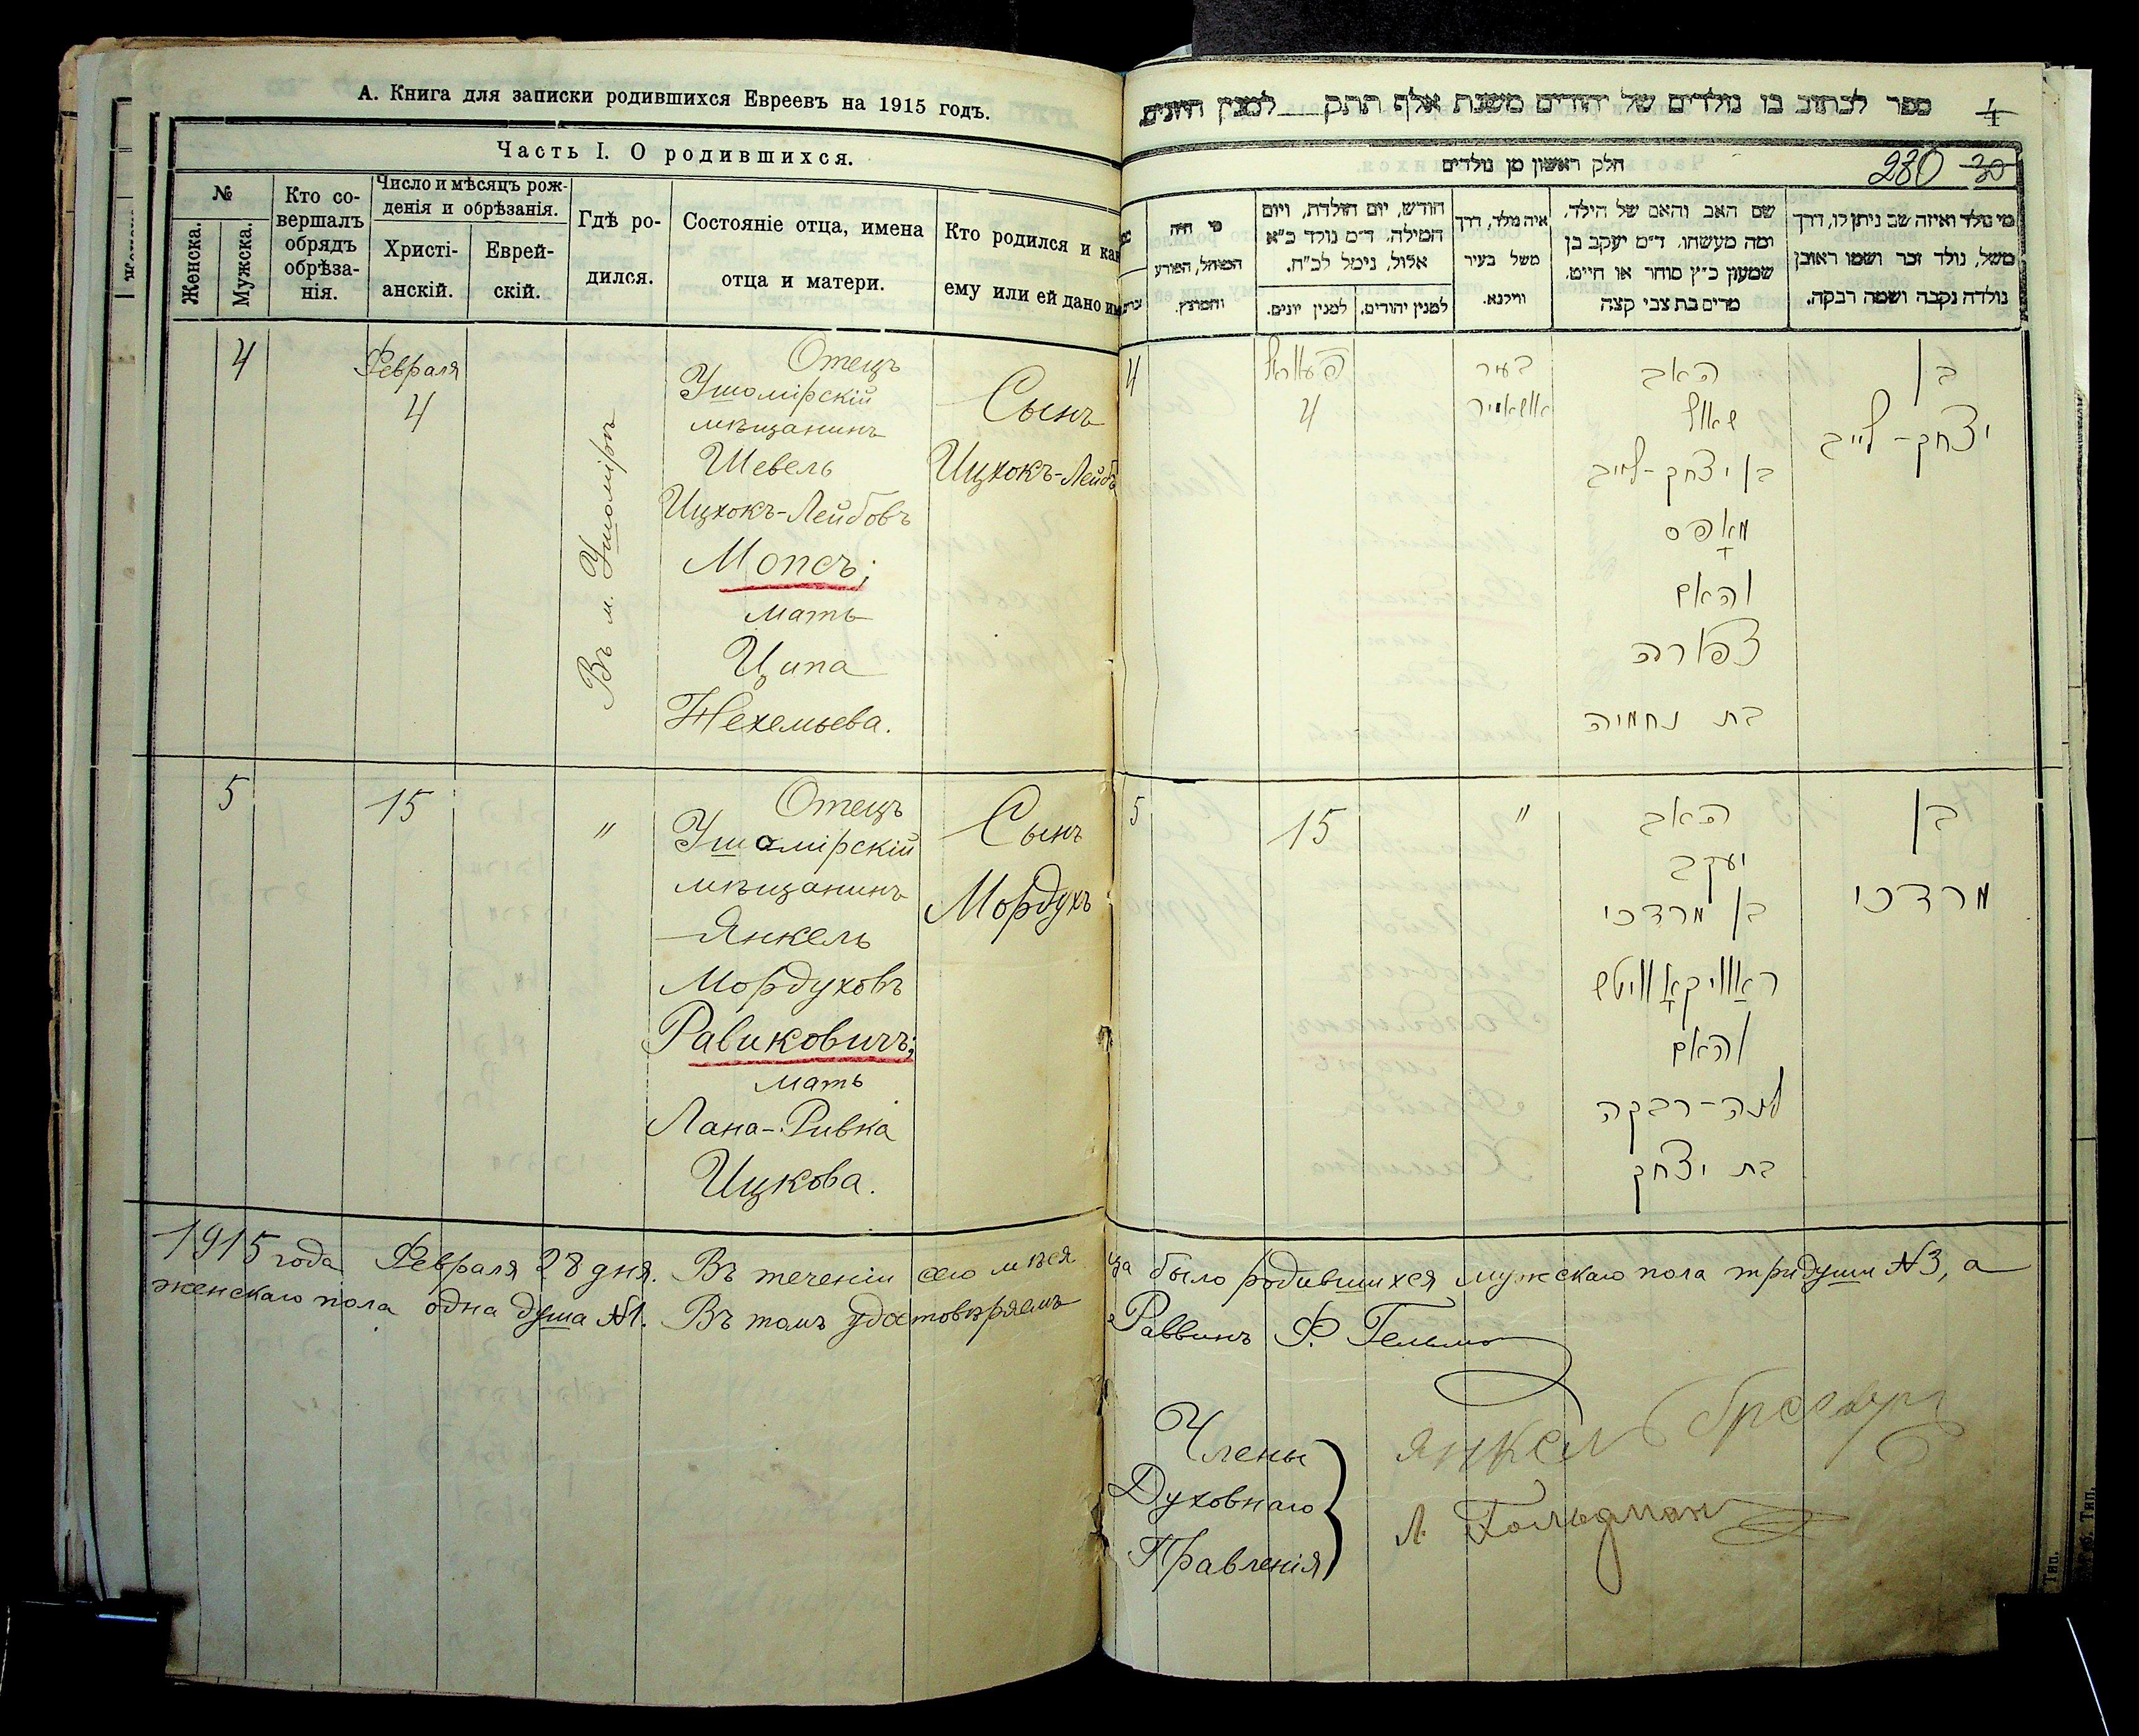 А. Книга для записки родившихся Евреевъ на 1915 годъ.
Часть I. О родившихся.
№
Женска.
Мужска.
Кто со-
вершалъ
обрядъ
обрѣза-
нія.
Число и мѣсяцъ рож-
денія и обрѣзанія.
Христі-
анскій.
Еврей-
скій.
Гдѣ ро-
дился.
Состояніе отца, имена
отца и матери.
Кто родился и как
ему или ей дано им
4
Февраля
4
Въ м. Ушомірѣ
Отецъ
Ушомірскій
мѣщанинъ
Шевель
Ицхокъ-Лейбовъ
Мопсъ;
мать
Ципа
Нехемьева.
Сынъ
Ицхокъ-Лейбъ
5
15
"
Отецъ
Ушомірскій
мѣщанинъ
Янкель
Мордуховъ
Равиковичъ;
мать
Лана-Ривка
Ицкова.
Сынъ
Мордухъ
ספר לכתוב בו נולדים של יהודים משנת אלף תתק למנין היונים
4
חלק ראשון מן נולדים
280 30
מי היה
המוהל, הפורע
והמוצץ.
חודש, יום הולדת, ויום
המילה. ד״מ נולד כ״א
אלול, נימל לכ״ח.
למנין יונים.
למנין יהודים.
איה נולד, דרך
משל בעיר
ווילנא.
שם האב והאם של הילד,
ומה מעשהו. ד״מ יעקב בן
שמעון כ״ץ סוחר או חייט,
מרים בת צבי קצה
מי נולד ואיזה שם ניתן לו, דרך
משל, נולד זכר ושמו ראובן
נולדה נקבה ושמה רבקה.
4
4
בעיר
אושאמיר
האב
שאול
בן יצחק-לייב
מאָפס
והאם
צפורה
בת נחמיה
בן
יצחק-לייב
5
15
"
האב
יעקב
בן מרדכי
ראַוויקאָוויטש
והאם
לאנה-רבקה
בת יצחק
בן
מרדכי
1915 года Февраля 28 дня. Въ теченіи сего мѣсяца было родившихся мужскаго пола три души №3, а
женскаго пола одна душа №1. Въ томъ удостовѣряемъ
Раввинъ Ф. Гельма
Члены
Духовнаго
Правленія
Янкел
Л. Гольдман